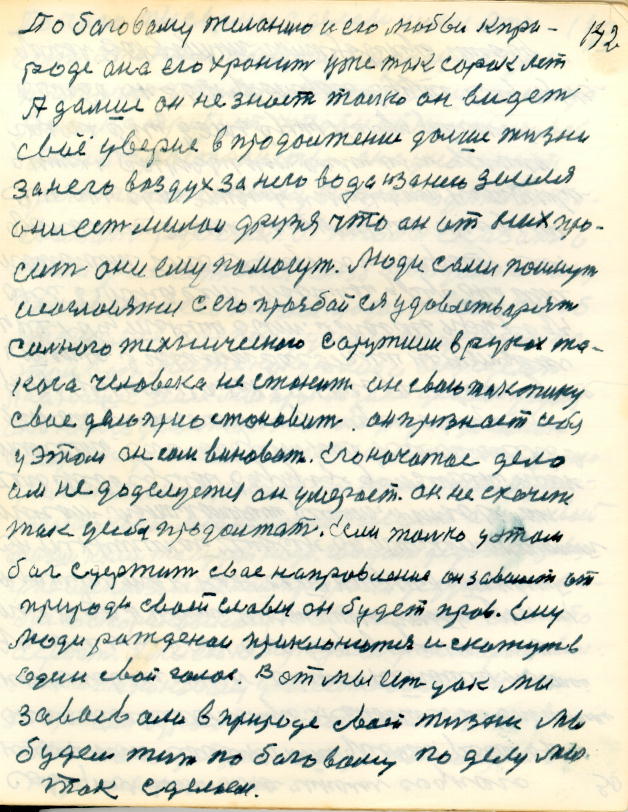 По боговому желанию и его любви к при- 142
роде она его хранит уже так сорок лет
А дальше он не знает только он видет
своё уверие в продолжение дольше жизни
за него воздух за него вода и за него земля
они ест милаи друзя что он от них про-
сит они ему помогут. Люди сами поймут
и согласяжи с его прозбай ся удовлетварят
самого технического сарутиии в руках та-
кого человека не станит он свою тактику
свое дело приостоновит он признает себя
у этом он сам виноват. Его начатае дело
им не доделуется он умерает. он не схочит
так дело продолжат. Если только у этом
бог здержит свае направление он заваюет от
природы своей славы он будет прав. Ему
люди рожденаи приклонются и скажут в
один свой голос. Вот мы ест у як мы
заваевали в природе своей жизни мы
будем жит по боговому по делу мы
так сделаем.